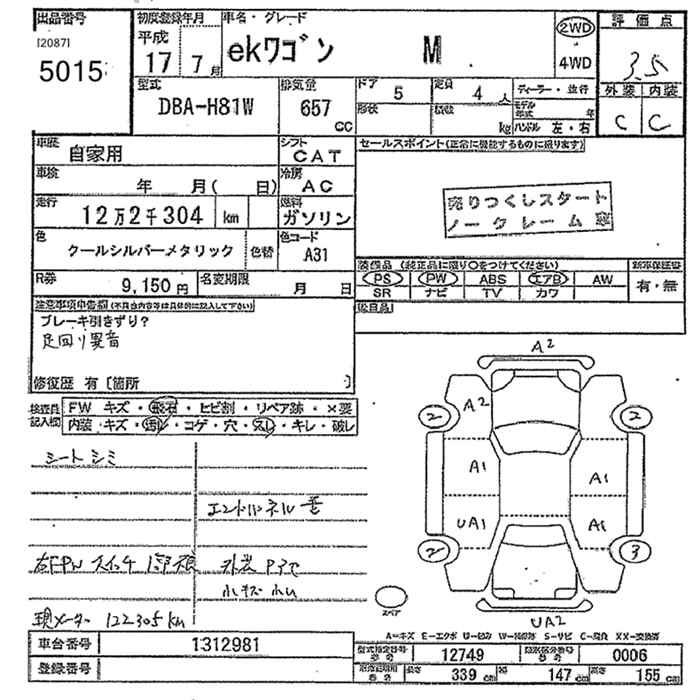 出品番号
[2087]
5015
初度登録年月
平成
17 7月
車名・グレード
ekワゴン M
2WD
4WD
評価点
3.5
外装 内装
C C
型式
DBA-H81W
排気量
657
CC
ドア 5
定員 4 人
形状
積数 kg
ディーラー・並行
モデル年式 年
ハンドル 左・右
車歴
自家用
シフト
CAT
車検
年 月( 日)
冷房
AC
走行
12万2千304 km
燃料
ガソリン
色
クールシルバーメタリック
色替
色コード
A31
R券
9,150円
名変期限
月 日
セールスポイント(正常に機能するものに限ります)
売りつくしスタート
ノークレーム
装備品 (純正品に限り〇をつけてください)
PS PW ABS エアB AW
SR ナビ TV カワ
新車保証書
有・無
注意事項申告欄(不具合内容等は具体的に記入して下さい)
ブレーキ引きずり?
足回り異音
修復歴 有 [箇所 ]
検査員記入欄
FW キズ・飛石・ヒビ割・リペア跡・×要
内装・キズ・汚レ・コゲ・穴・スレ・キレ・破レ
シートシミ
エンドパネル
右FPWスイッチ
外装
小キズ 小U
現メーター 122305km
A2
A2
2
2
A1
A1
UA1
A1
2
3
スペア
UA2
車台番号
1312981
登録番号
A-キズ E-エクボ U-凹み W-補修跡 S-サビ C-腐食 XX-交換済
型式指定番号
12749
類別区分番号
0006
長さ 339cm
巾 147cm
高さ 155cm